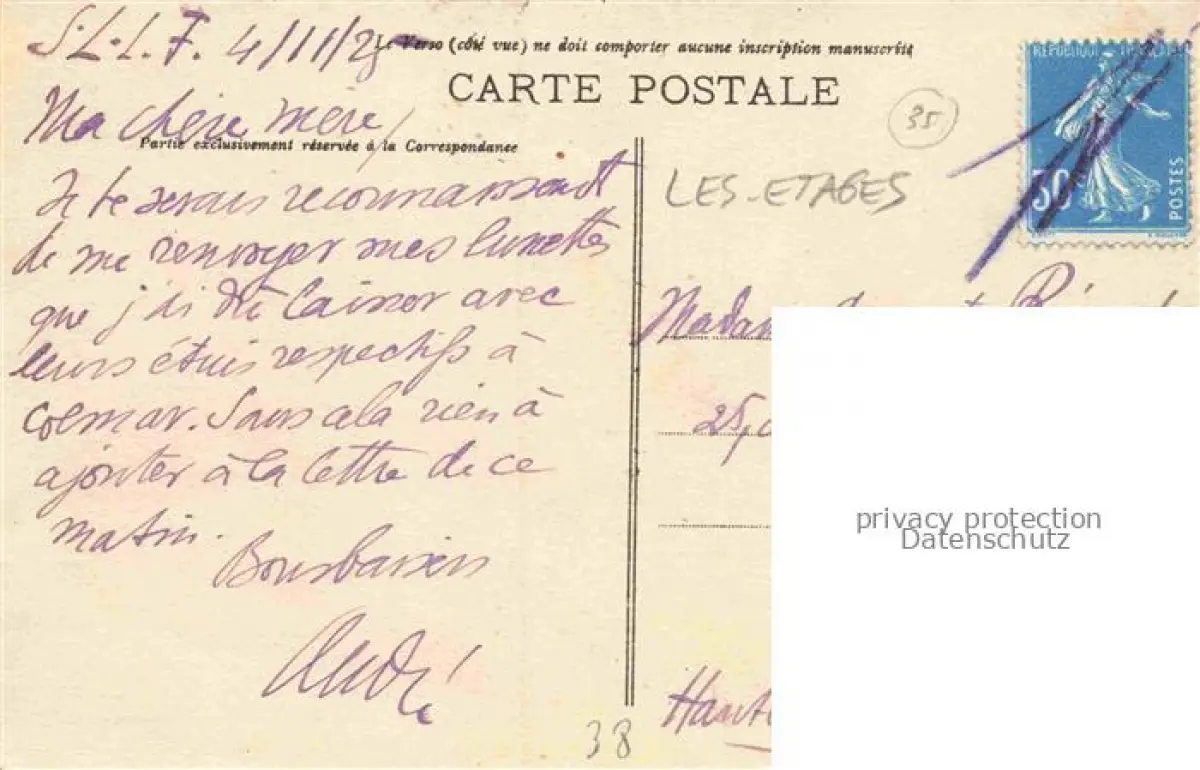 S.L.L.F. 4/11/25
Le Verso (côté vue) ne doit comporter aucune inscription manuscrite
CARTE POSTALE
Ma chère mère,
Partie exclusivement réservée à la Correspondance
Je te serais reconnaissant
de me renvoyer mes lunettes
que j'ai dû laisser avec
leurs étuis respectifs à
Colmar. Sans cela rien à
ajouter à la lettre de ce
matin.
Bons baisers
André
38
35
LES-ETAGES
REPUBLIQUE FRANÇAISE
30
POSTES
Madam
25,
Haut
privacy protection
Datenschutz